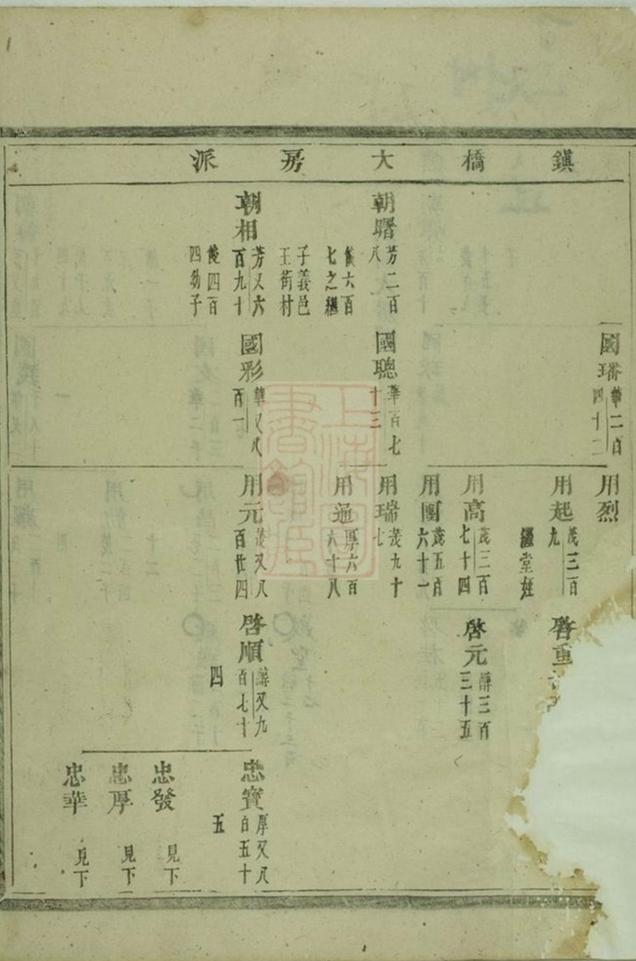 鎮橋大房派
國璠 華二百四十二
朝曙 芳二百八
後六百七之繼子義邑王街村
朝相 芳又六百九十
後四百四幼子
國聰 華百七十三
國彩 華又八百一
用烈
用起 茂三百九
繼堂姪
用高 茂三百七十四
用團 茂五百六十一
用瑞 茂九十七
用通 厚六百六十八
用元 茂又八百廿四
啓重
啓元 諱三百三十五
啓順 諱又九百七十四
忠寶 厚又八百五十五
忠發 見下
忠厚 見下
忠華 見下
上海圖書館藏